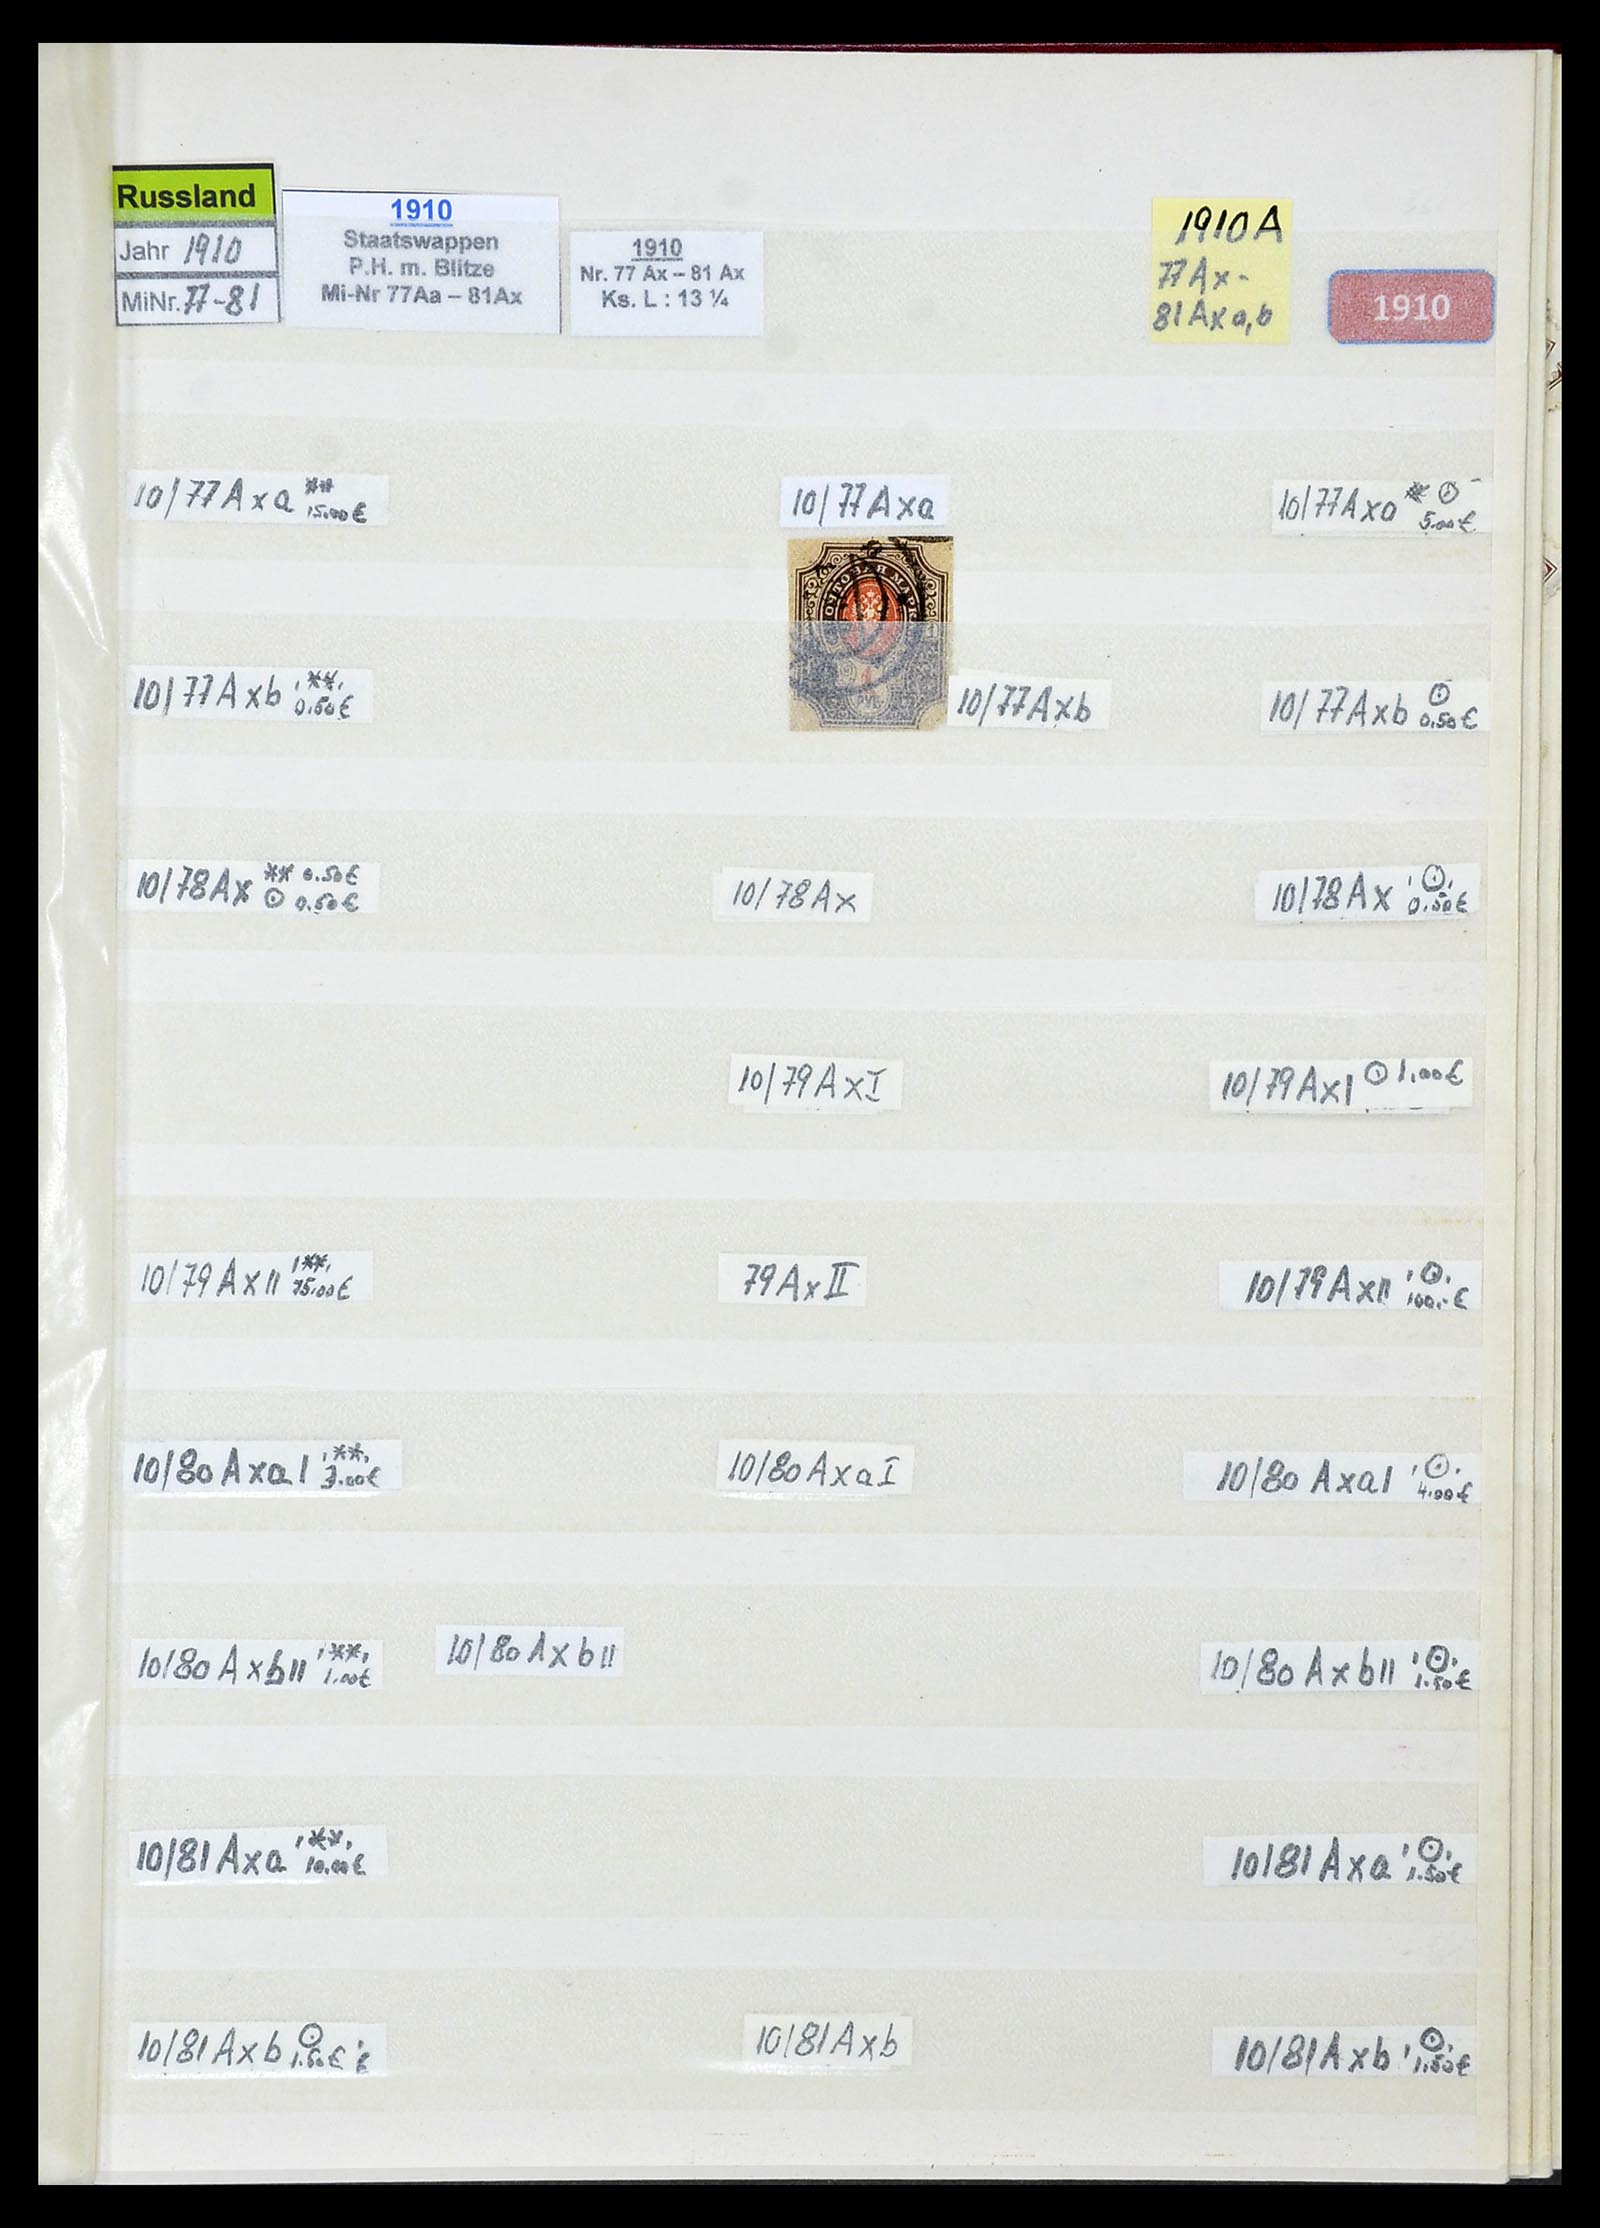 Russland
Jahr 1910
MiNr. 77-81
1910
Staatswappen
P.H. m. Blitze
Mi-Nr 77Aa – 81Ax
1910
Nr. 77 Ax – 81 Ax
Ks. L : 13 ¼
1910 A
77 Ax -
81 Ax a, b
1910
10/77 Axa **
15.00 €
10/77 Axa
10/77 Axa * ⊙
5.00 €
ПОЧТОВАЯ МАРК
1
РУБ
10/77 Axb **
0.50 €
10/77 Axb
10/77 Axb ⊙
0.50 €
10/78 Ax ** 0.50 €
⊙ 0.50 €
10/78 Ax
10/78 Ax ⊙
0.50 €
10/79 Ax I
10/79 Ax I ⊙ 1.00 €
10/79 Ax II **
75.00 €
79 Ax II
10/79 Ax II ⊙
100.- €
10/80 Axa I **
3.00 €
10/80 Axa I
10/80 Axa I ⊙
4.00 €
10/80 Axb II **
1.00 €
10/80 Axb II
10/80 Axb II ⊙
1.50 €
10/81 Axa **
10.00 €
10/81 Axa ⊙
1.50 €
10/81 Axb ⊙
1.50 € €
10/81 Axb
10/81 Axb ⊙
1.50 €